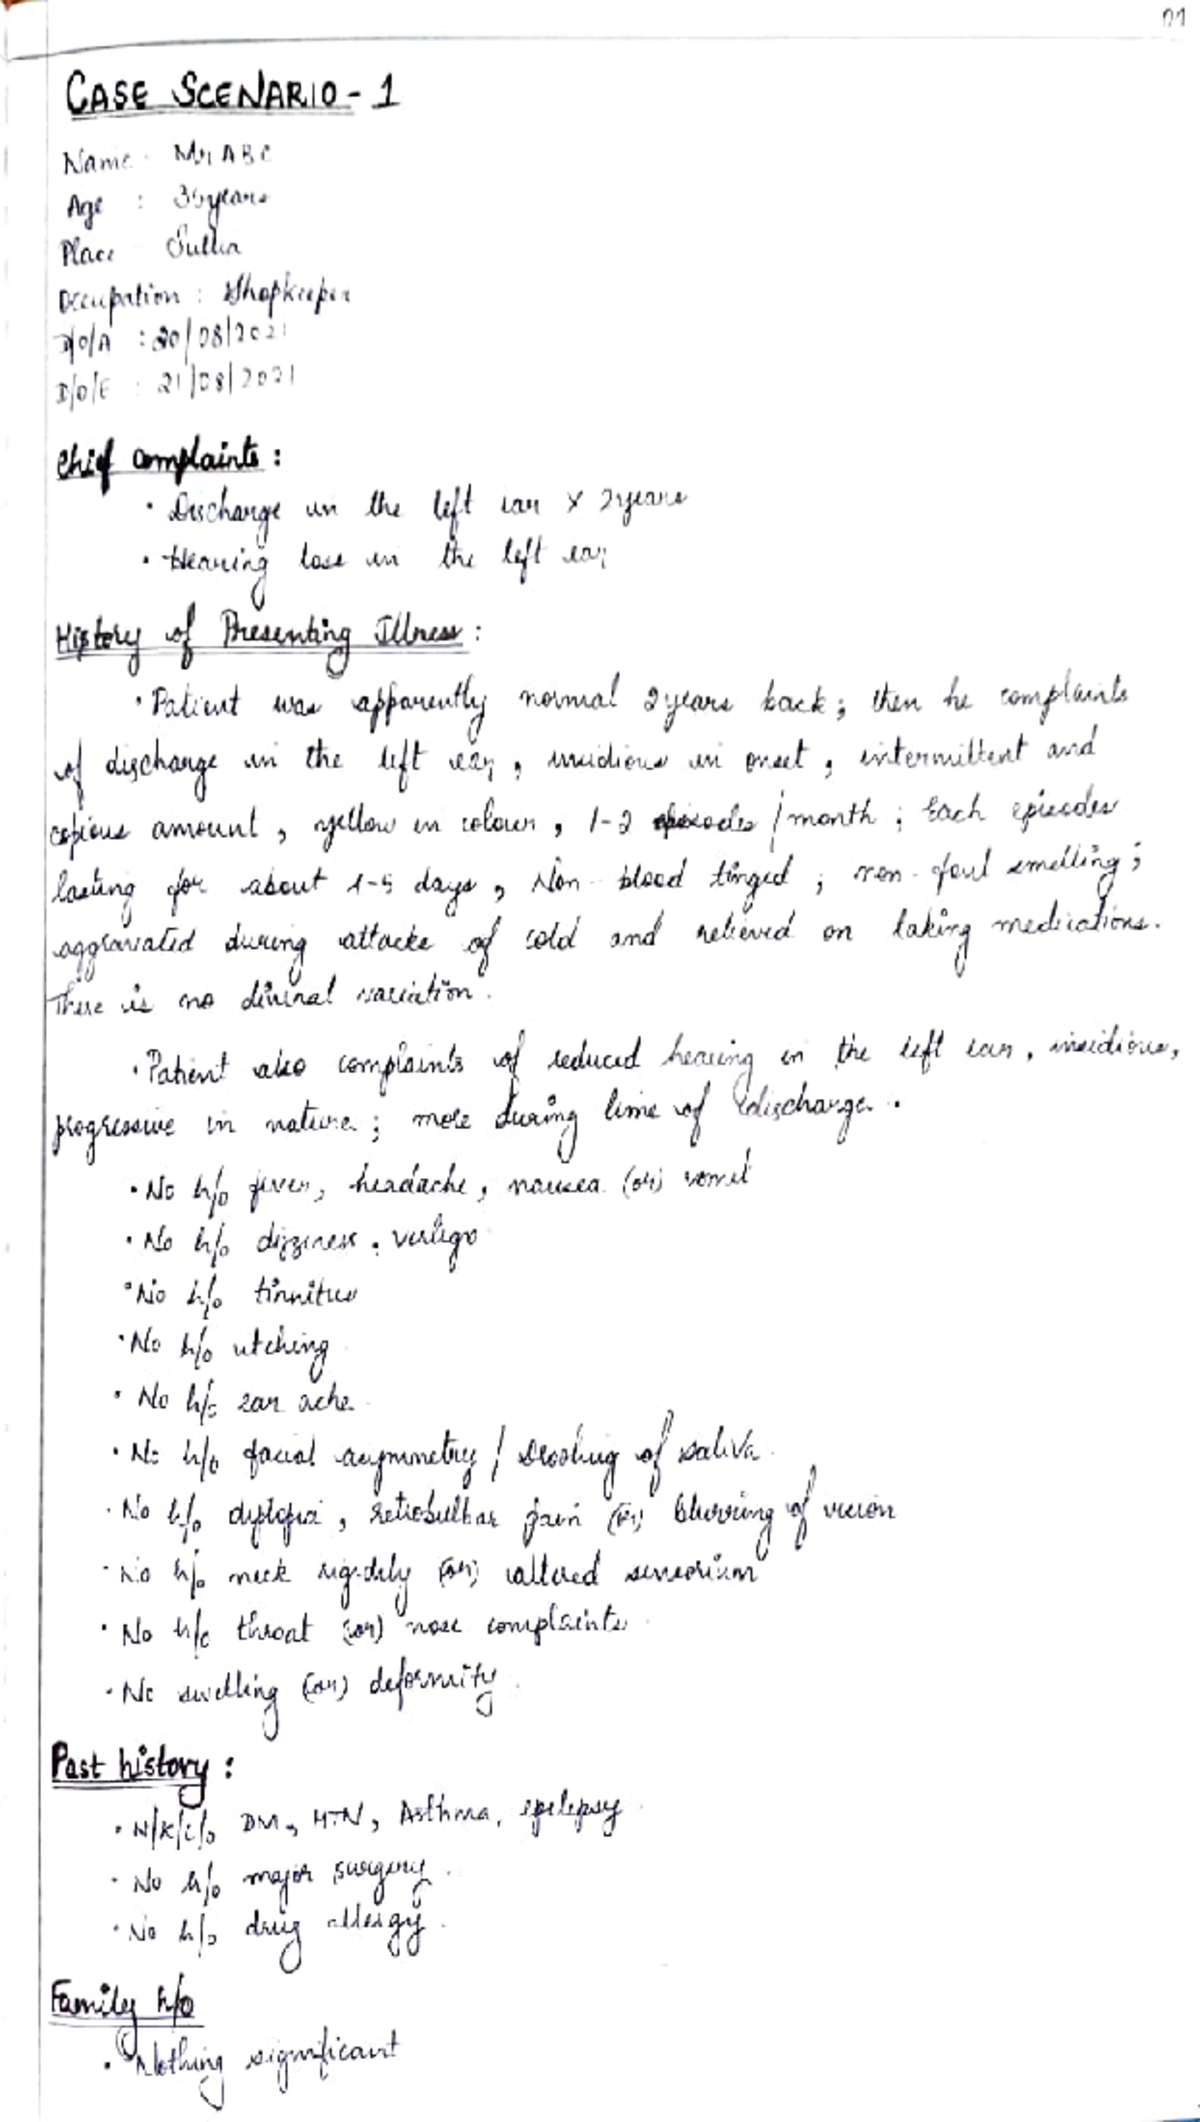 01
CASE SCENARIO - 1
Name : Mr ABC
Age : 35years
Place Sullia
Occupation : Shopkeeper
D/O/A : 20/08/2021
D/O/E : 21/08/2021
Chief complaints :
• Discharge in the left ear x 2years
• Hearing loss in the left ear
History of Presenting Illness :
• Patient was apparently normal 2years back ; then he complaints
of discharge in the left ear , insidious in onset , intermittent and
copious amount , yellow in colour , 1-2 episodes / month ; Each episodes
lasting for about 1-5 days , Non - blood tinged ; non - foul smelling ;
aggravated during attacks of cold and relieved on taking medications.
There is no diurnal variation .
• Patient also complaints of reduced hearing in the left ear , insidious,
progressive in nature ; more during time of discharge .
• No h/o fever, headache, nausea (or) vomit
• No h/o dizziness , vertigo
• No h/o tinnitus
• No h/o itching
• No h/o ear ache
• No h/o facial asymmetry / drooling of saliva
• No h/o diplopia , retrobulbar pain (or) blurring of vision
• No h/o neck rigidity (or) altered sensorium
• No h/o throat (or) nose complaints
• No swelling (or) deformity
Past history :
• N/K/C/o DM, HTN, Asthma, epilepsy
• No h/o major surgery .
• No h/o drug allergy .
Family h/o
• Nothing significant